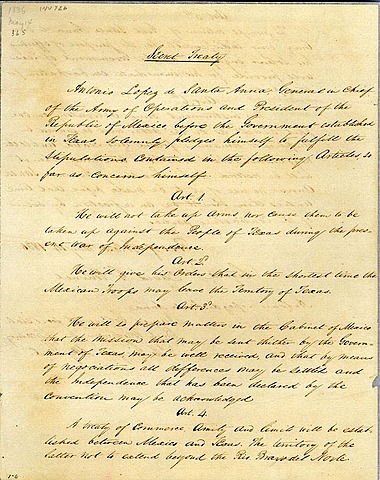 1836
May 14
365
Secret Treaty
Antonio Lopez de Santa Anna, General in Chief
of the Army of Operations and President of the
Republic of Mexico before the Government established
in Texas, Solemnly pledges himself to fulfill the
Stipulations Contained in the following Articles so
far as concerns himself
Art. 1.
He will not take up arms nor cause them to be
taken up against the People of Texas during the pres-
ent War of Independence.
Art. 2d
He will give his Orders that in the shortest time the
Mexican Troops may leave the Territory of Texas.
Art. 3d
He will so prepare matters in the Cabinet of Mexico
that the Mission that may be sent thither by the Govern-
ment of Texas may be well received, and that by means
of negociations all differences may be settled and
the Independence that has been declared by the
Convention may be acknowledged
Art. 4.
A treaty of Commerce, Amity and limits will be estab-
lished between Mexico and Texas. The territory of the
latter not to extend beyond the Rio Bravo del Norte